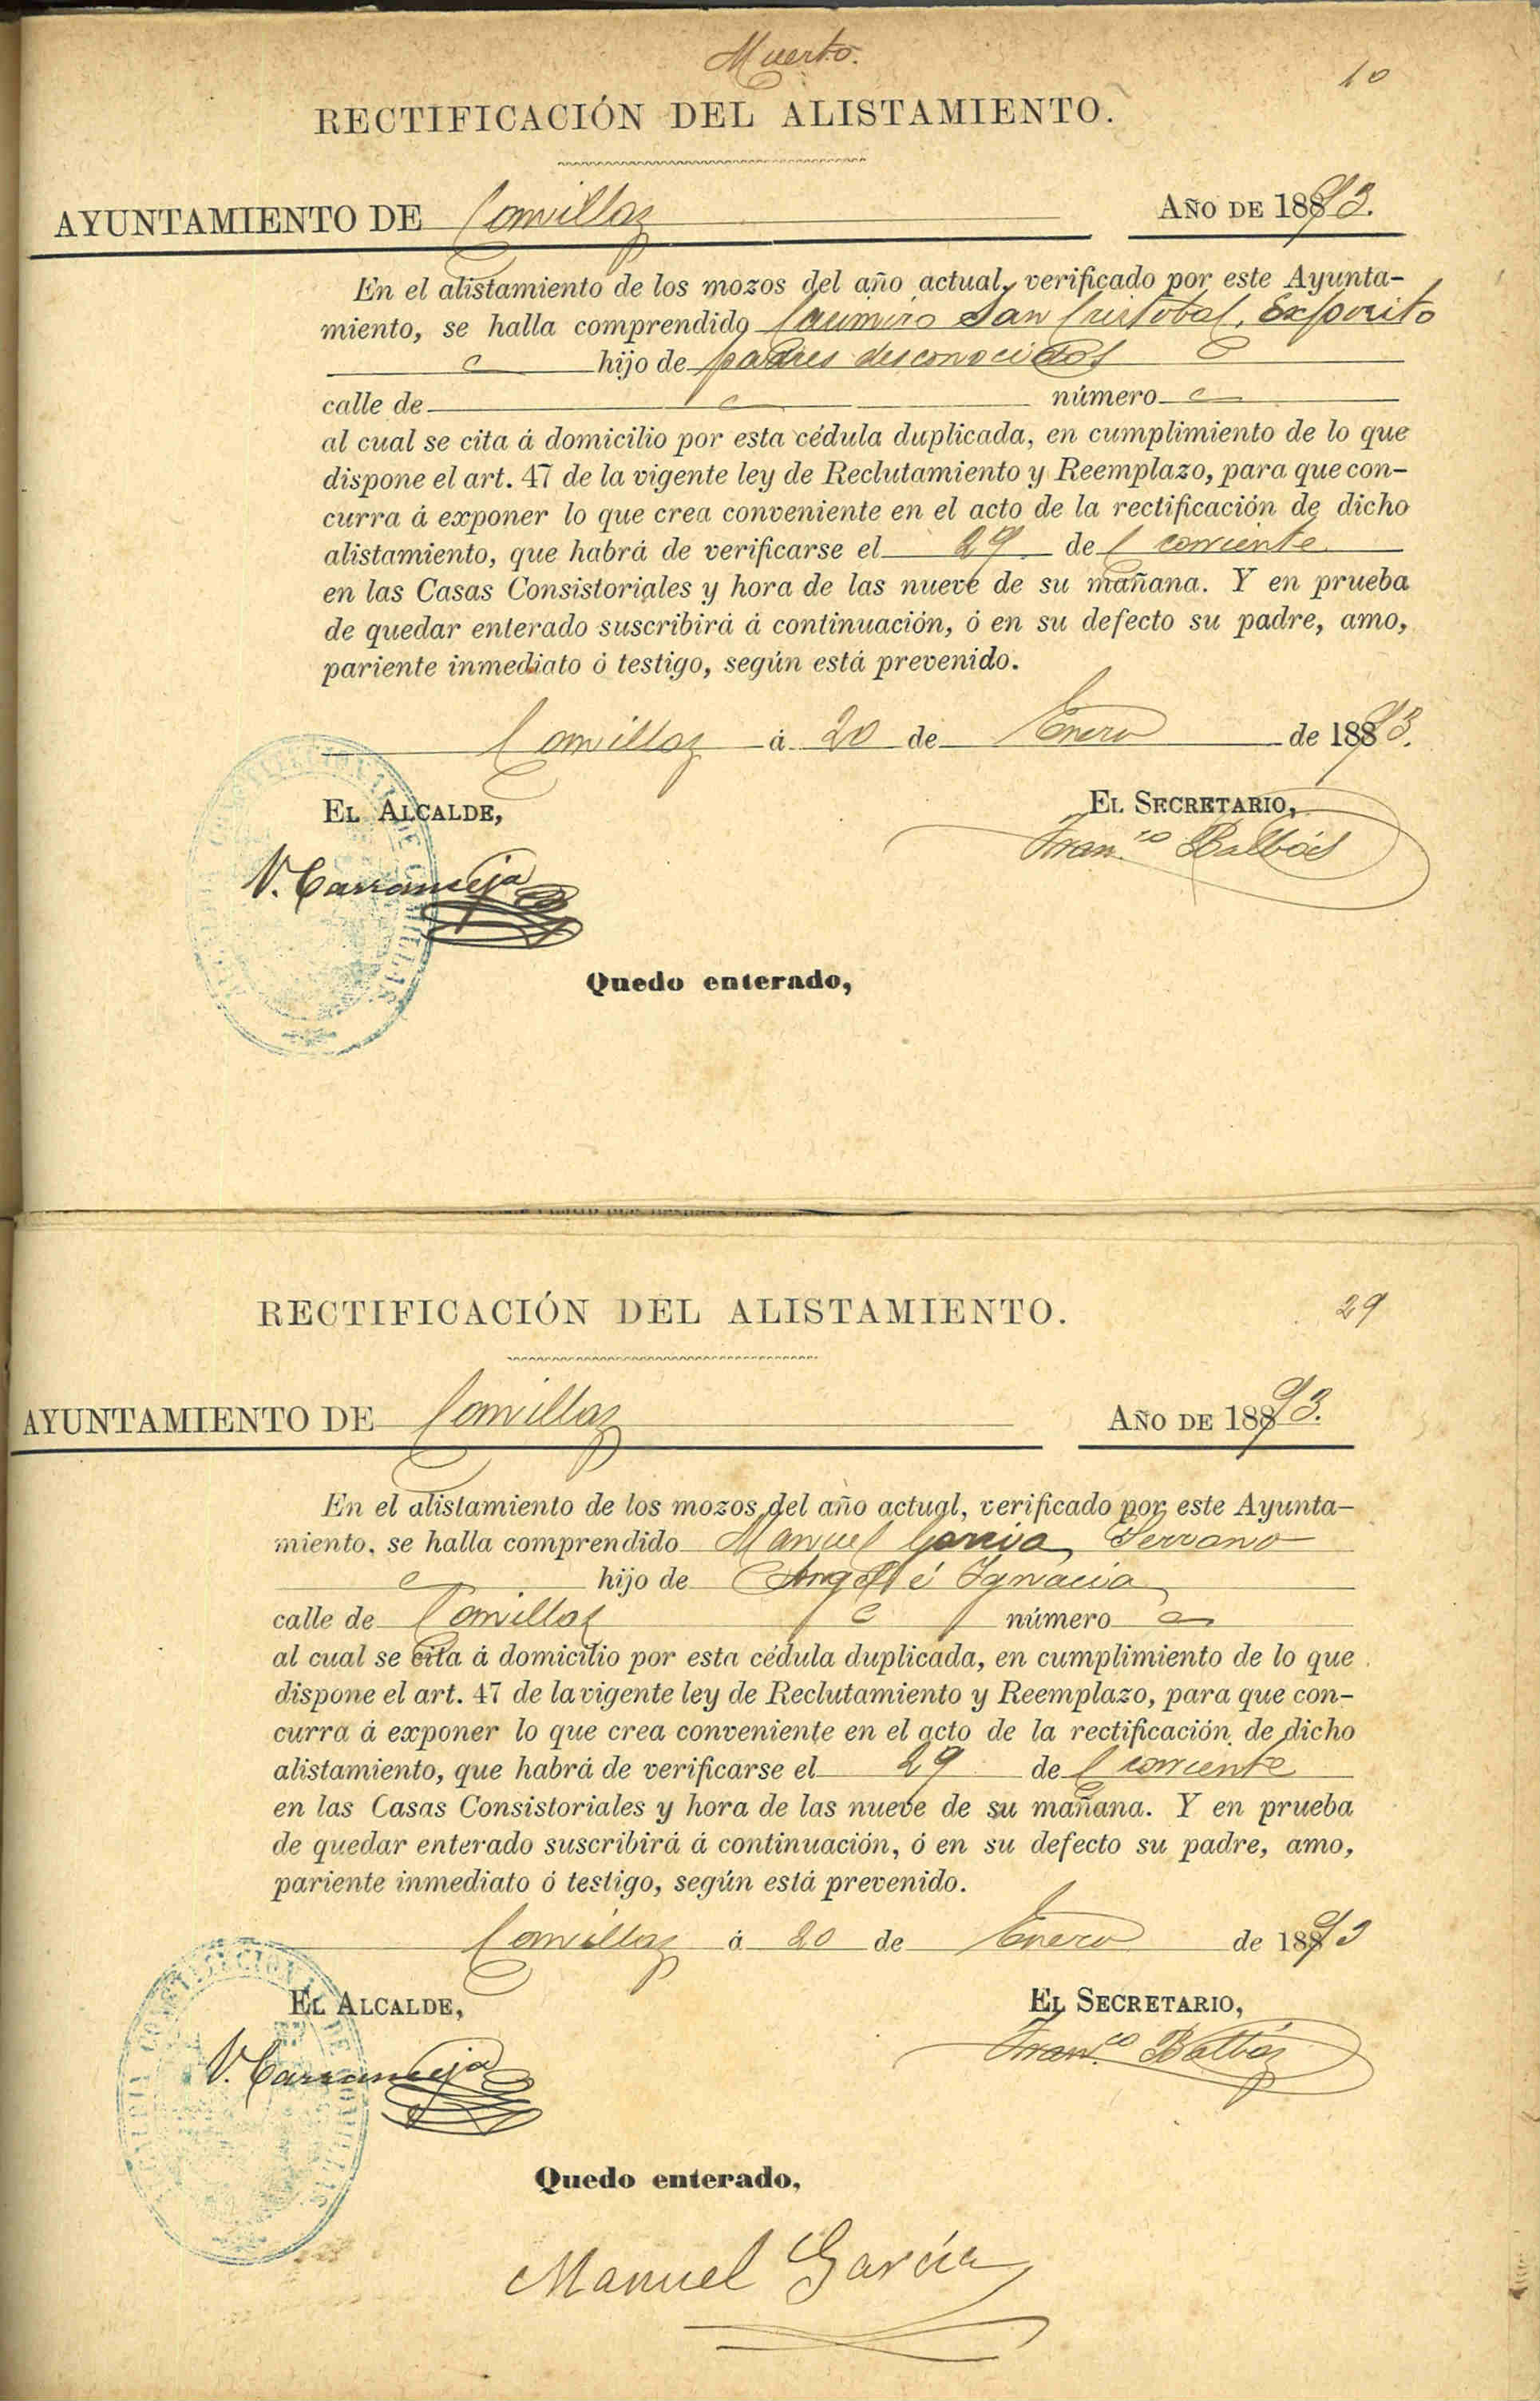 Muerto.
10
RECTIFICACIÓN DEL ALISTAMIENTO.
AYUNTAMIENTO DE Comillas AÑO DE 1893.
En el alistamiento de los mozos del año actual, verificado por este Ayunta-
miento, se halla comprendido Casimiro San Cristobal, Exposito
hijo de padres desconocidos
calle de número
al cual se cita á domicilio por esta cédula duplicada, en cumplimiento de lo que
dispone el art. 47 de la vigente ley de Reclutamiento y Reemplazo, para que con-
curra á exponer lo que crea conveniente en el acto de la rectificación de dicho
alistamiento, que habrá de verificarse el 29 del corriente
en las Casas Consistoriales y hora de las nueve de su mañana. Y en prueba
de quedar enterado suscribirá á continuación, ó en su defecto su padre, amo,
pariente inmediato ó testigo, según está prevenido.
Comillas á 20 de Enero de 1893.
EL ALCALDE, EL SECRETARIO,
V. Carranceja Fran.co Balbás
Quedo enterado,
RECTIFICACIÓN DEL ALISTAMIENTO.
29
AYUNTAMIENTO DE Comillas AÑO DE 1893.
En el alistamiento de los mozos del año actual, verificado por este Ayunta-
miento, se halla comprendido Manuel Garcia Serrano
hijo de Angel é Ignacia
calle de Comillas número
al cual se cita á domicilio por esta cédula duplicada, en cumplimiento de lo que
dispone el art. 47 de la vigente ley de Reclutamiento y Reemplazo, para que con-
curra á exponer lo que crea conveniente en el acto de la rectificación de dicho
alistamiento, que habrá de verificarse el 29 del corriente
en las Casas Consistoriales y hora de las nueve de su mañana. Y en prueba
de quedar enterado suscribirá á continuación, ó en su defecto su padre, amo,
pariente inmediato ó testigo, según está prevenido.
Comillas á 20 de Enero de 1893
EL ALCALDE, EL SECRETARIO,
V. Carranceja Fran.co Balbás
Quedo enterado,
Manuel García